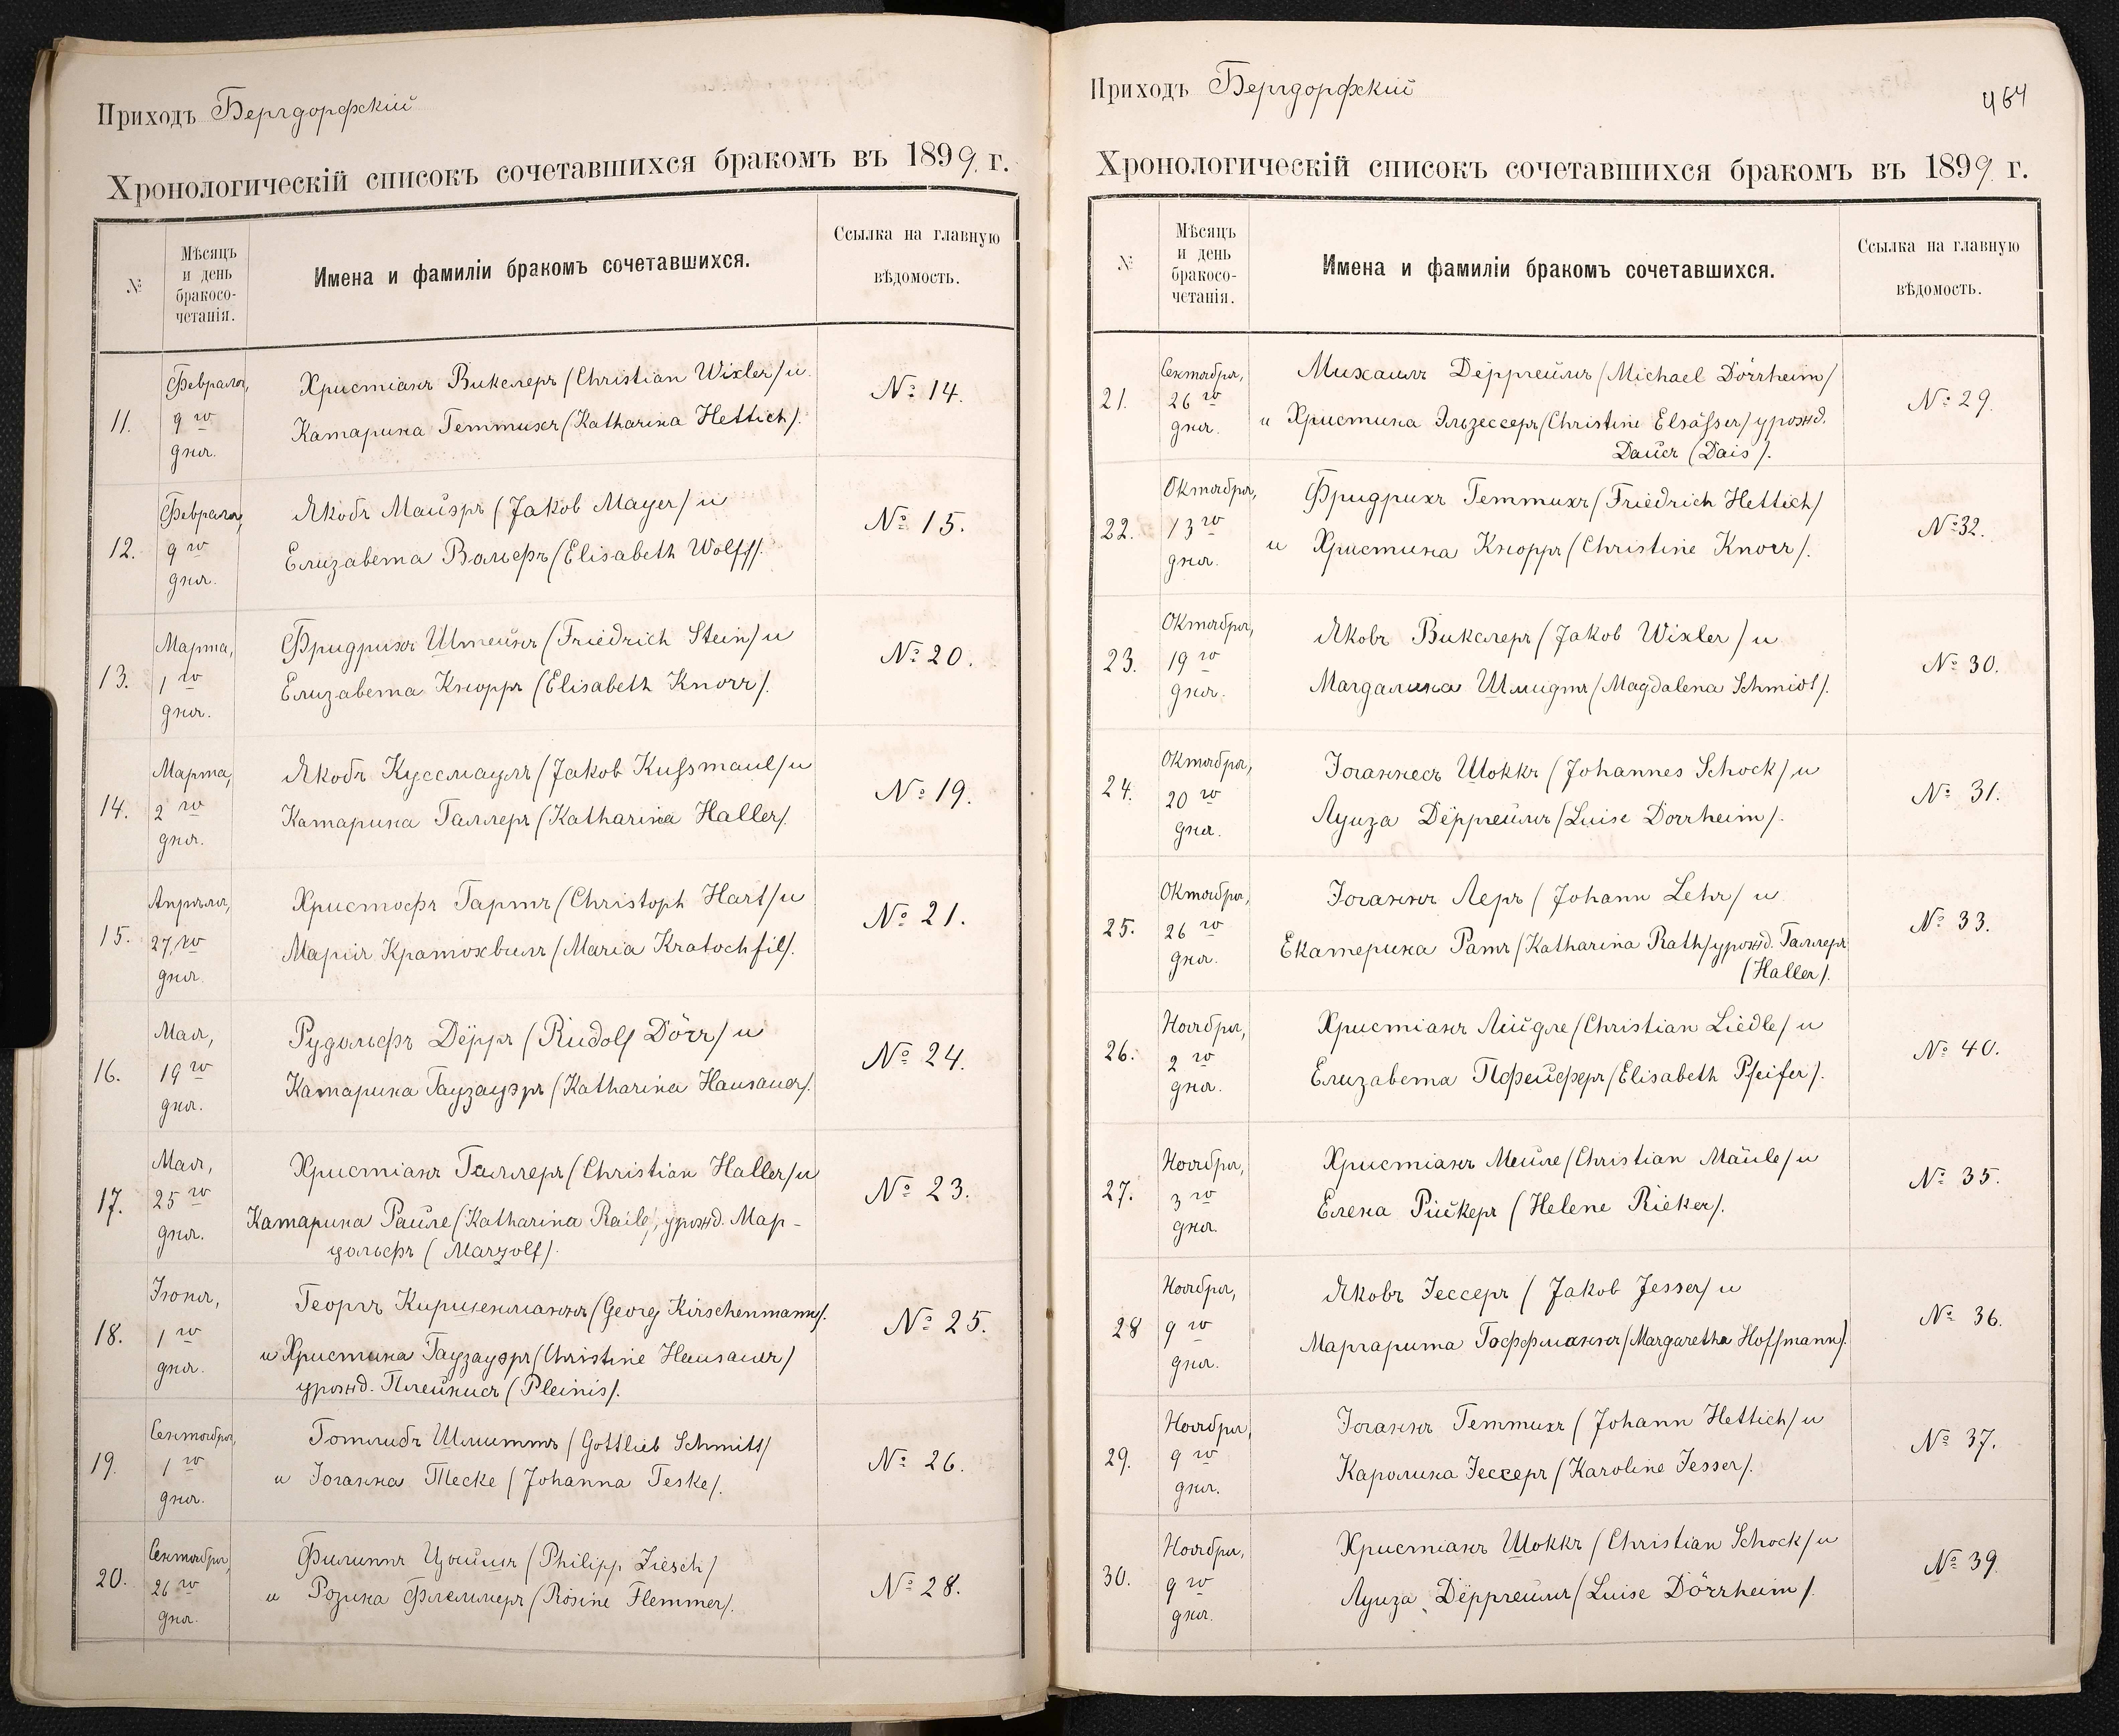 Приходъ Бергдорфскій
Хронологическій списокъ сочетавшихся бракомъ въ 1899 г.
№
Мѣсяцъ
и день
бракосо-
четанія.
Имена и фамиліи бракомъ сочетавшихся.
Ссылка на главную
вѣдомость.
11.
Февраля,
9 го
дня.
Христіанъ Викслеръ (Christian Wixler) и
Катарина Геттихъ (Katharina Hettich).
№ 14.
12.
Февраля,
9 го
дня.
Якобъ Майэръ (Jakob Mayer) и
Елизавета Вольфъ (Elisabeth Wolff).
№ 15.
13.
Марта,
1 го
дня.
Фридрихъ Штейнъ (Friedrich Stein) и
Елизавета Кнорръ (Elisabeth Knorr).
№ 20.
14.
Марта,
2 го
дня.
Якобъ Куссмаулъ (Jakob Kußmaul) и
Катарина Галлеръ (Katharina Haller).
№ 19.
15.
Апрѣля,
27, го
дня.
Христофъ Гартъ (Christoph Hart) и
Марія Кратохвилъ (Maria Kratochfil).
№ 21.
16.
Мая,
19 го
дня.
Рудольфъ Дёрръ (Rudolf Dörr) и
Катарина Гаузауэръ (Katharina Hausauer).
№ 24.
17.
Мая,
25 го
дня.
Христіанъ Галлеръ (Christian Haller) и
Катарина Райле (Katharina Raile), урожд. Мар-
цольфъ (Marzolf).
№ 23.
18.
Іюня,
1 го
дня.
Георгъ Киршенманнъ (Georg Kirschenmann).
и Христина Гаузауэръ (Christine Hausauer)
урожд. Плейнисъ (Pleinis).
№ 25.
19.
Сентября,
1 го
дня.
Готлибъ Шмиттъ (Gottlieb Schmitt)
и Іоганна Теске (Johanna Teske).
№ 26.
20.
Сентября,
26 го
дня.
Филиппъ Цойшъ (Philipp Ziesch)
и Розина Флеммеръ (Rosine Flemmer).
№ 28.
Приходъ Бергдорфскій
464
Хронологическій списокъ сочетавшихся бракомъ въ 1899 г.
№
Мѣсяцъ
и день
бракосо-
четанія.
Имена и фамиліи бракомъ сочетавшихся.
Ссылка на главную
вѣдомость.
21.
Сентября,
26 го
дня.
Михаилъ Дёрргеймъ (Michael Dörrheim)
и Христина Эльзессеръ (Christine Elsäßer) урожд.
Дайсъ (Dais).
№ 29.
22.
Октября,
13 го
дня.
Фридрихъ Геттихъ (Friedrich Hettich)
и Христина Кнорръ (Christine Knorr).
№ 32.
23.
Октября,
19 го
дня.
Яковъ Викслеръ (Jakob Wixler) и
Магдалина Шмидтъ (Magdalena Schmidt).
№ 30.
24.
Октября,
20 го
дня.
Іоганнесъ Шоккъ (Johannes Schock) и
Луиза Дёрргеймъ (Luise Dorrheim).
№ 31.
25.
Октября,
26 го
дня.
Іоганнъ Леръ (Johann Lehr) и
Екатерина Ратъ (Katharina Rath) урожд. Галлеръ
(Haller).
№ 33.
26.
Ноября,
2 го
дня.
Христіанъ Лийдле (Christian Liedle) и
Елизавета Пфейферъ (Elisabeth Pfeifer).
№ 40.
27.
Ноября,
3 го
дня.
Христіанъ Мейле (Christian Mäule) и
Елена Рийкеръ (Helene Rieker).
№ 35.
28
Ноября,
9 го
дня.
Яковъ Іессеръ (Jakob Jesser) и
Маргарита Гоффманнъ (Margaretha Hoffmann).
№ 36.
29.
Ноября,
9 го
дня.
Іоганнъ Геттихъ (Johann Hettich) и
Каролина Іессеръ (Karoline Jesser).
№ 37.
30.
Ноября,
9 го
дня.
Христіанъ Шоккъ (Christian Schock) и
Луиза Дёрргеймъ (Luise Dörrheim).
№ 39.